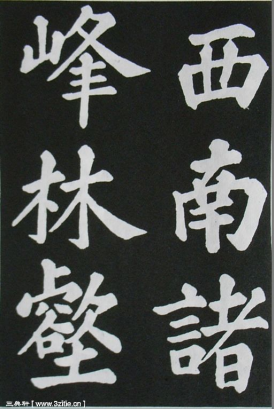 西南諸
峰林壑
三典轩 [ www.3zitie.cn ]